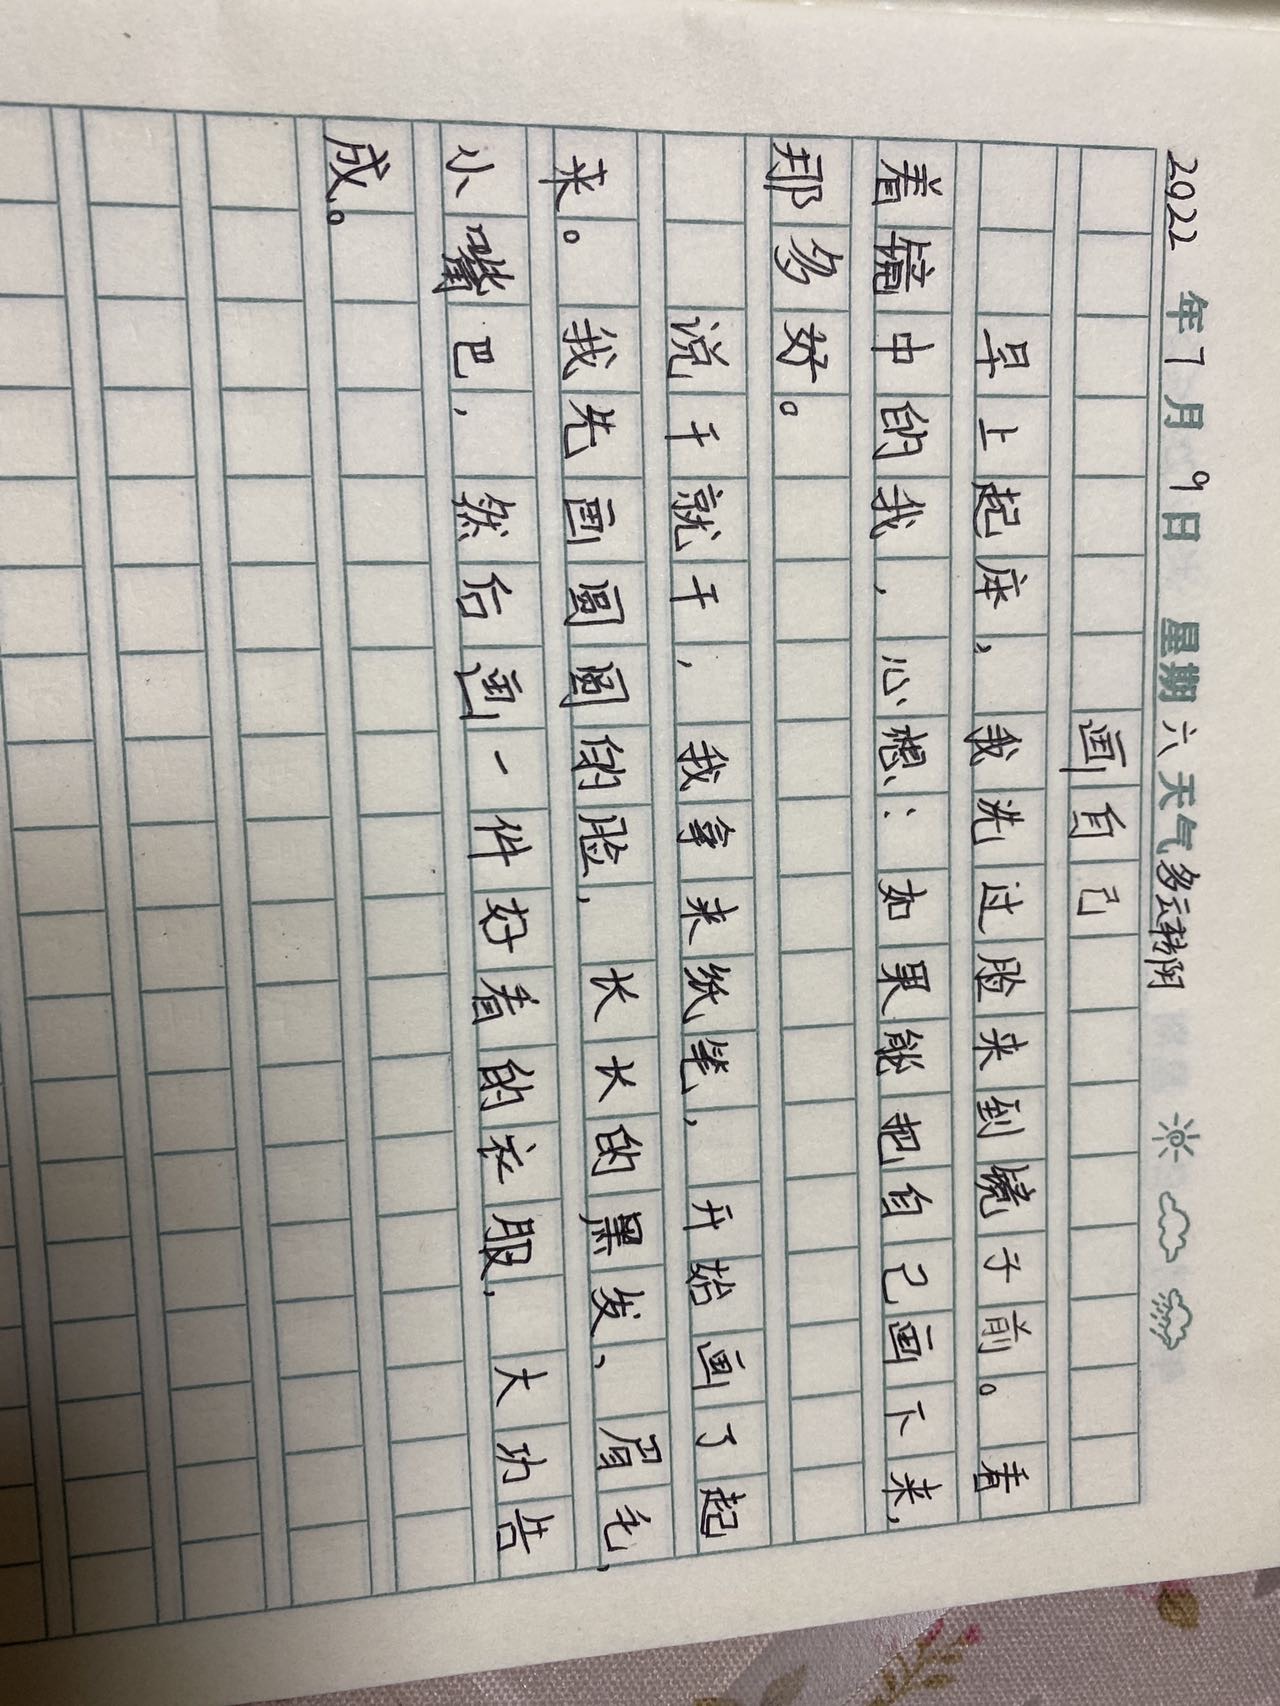 2022年7月9日 星期六 天气多云转阴
画自己
早上起床，我洗过脸来到镜子前。看
着镜中的我，心想：如果能把自己画下来，
那多好。
说干就干，我拿来纸笔，开始画了起
来。我先画圆圆的脸，长长的黑发、眉毛、
小嘴巴，然后画一件好看的衣服，大功告
成。